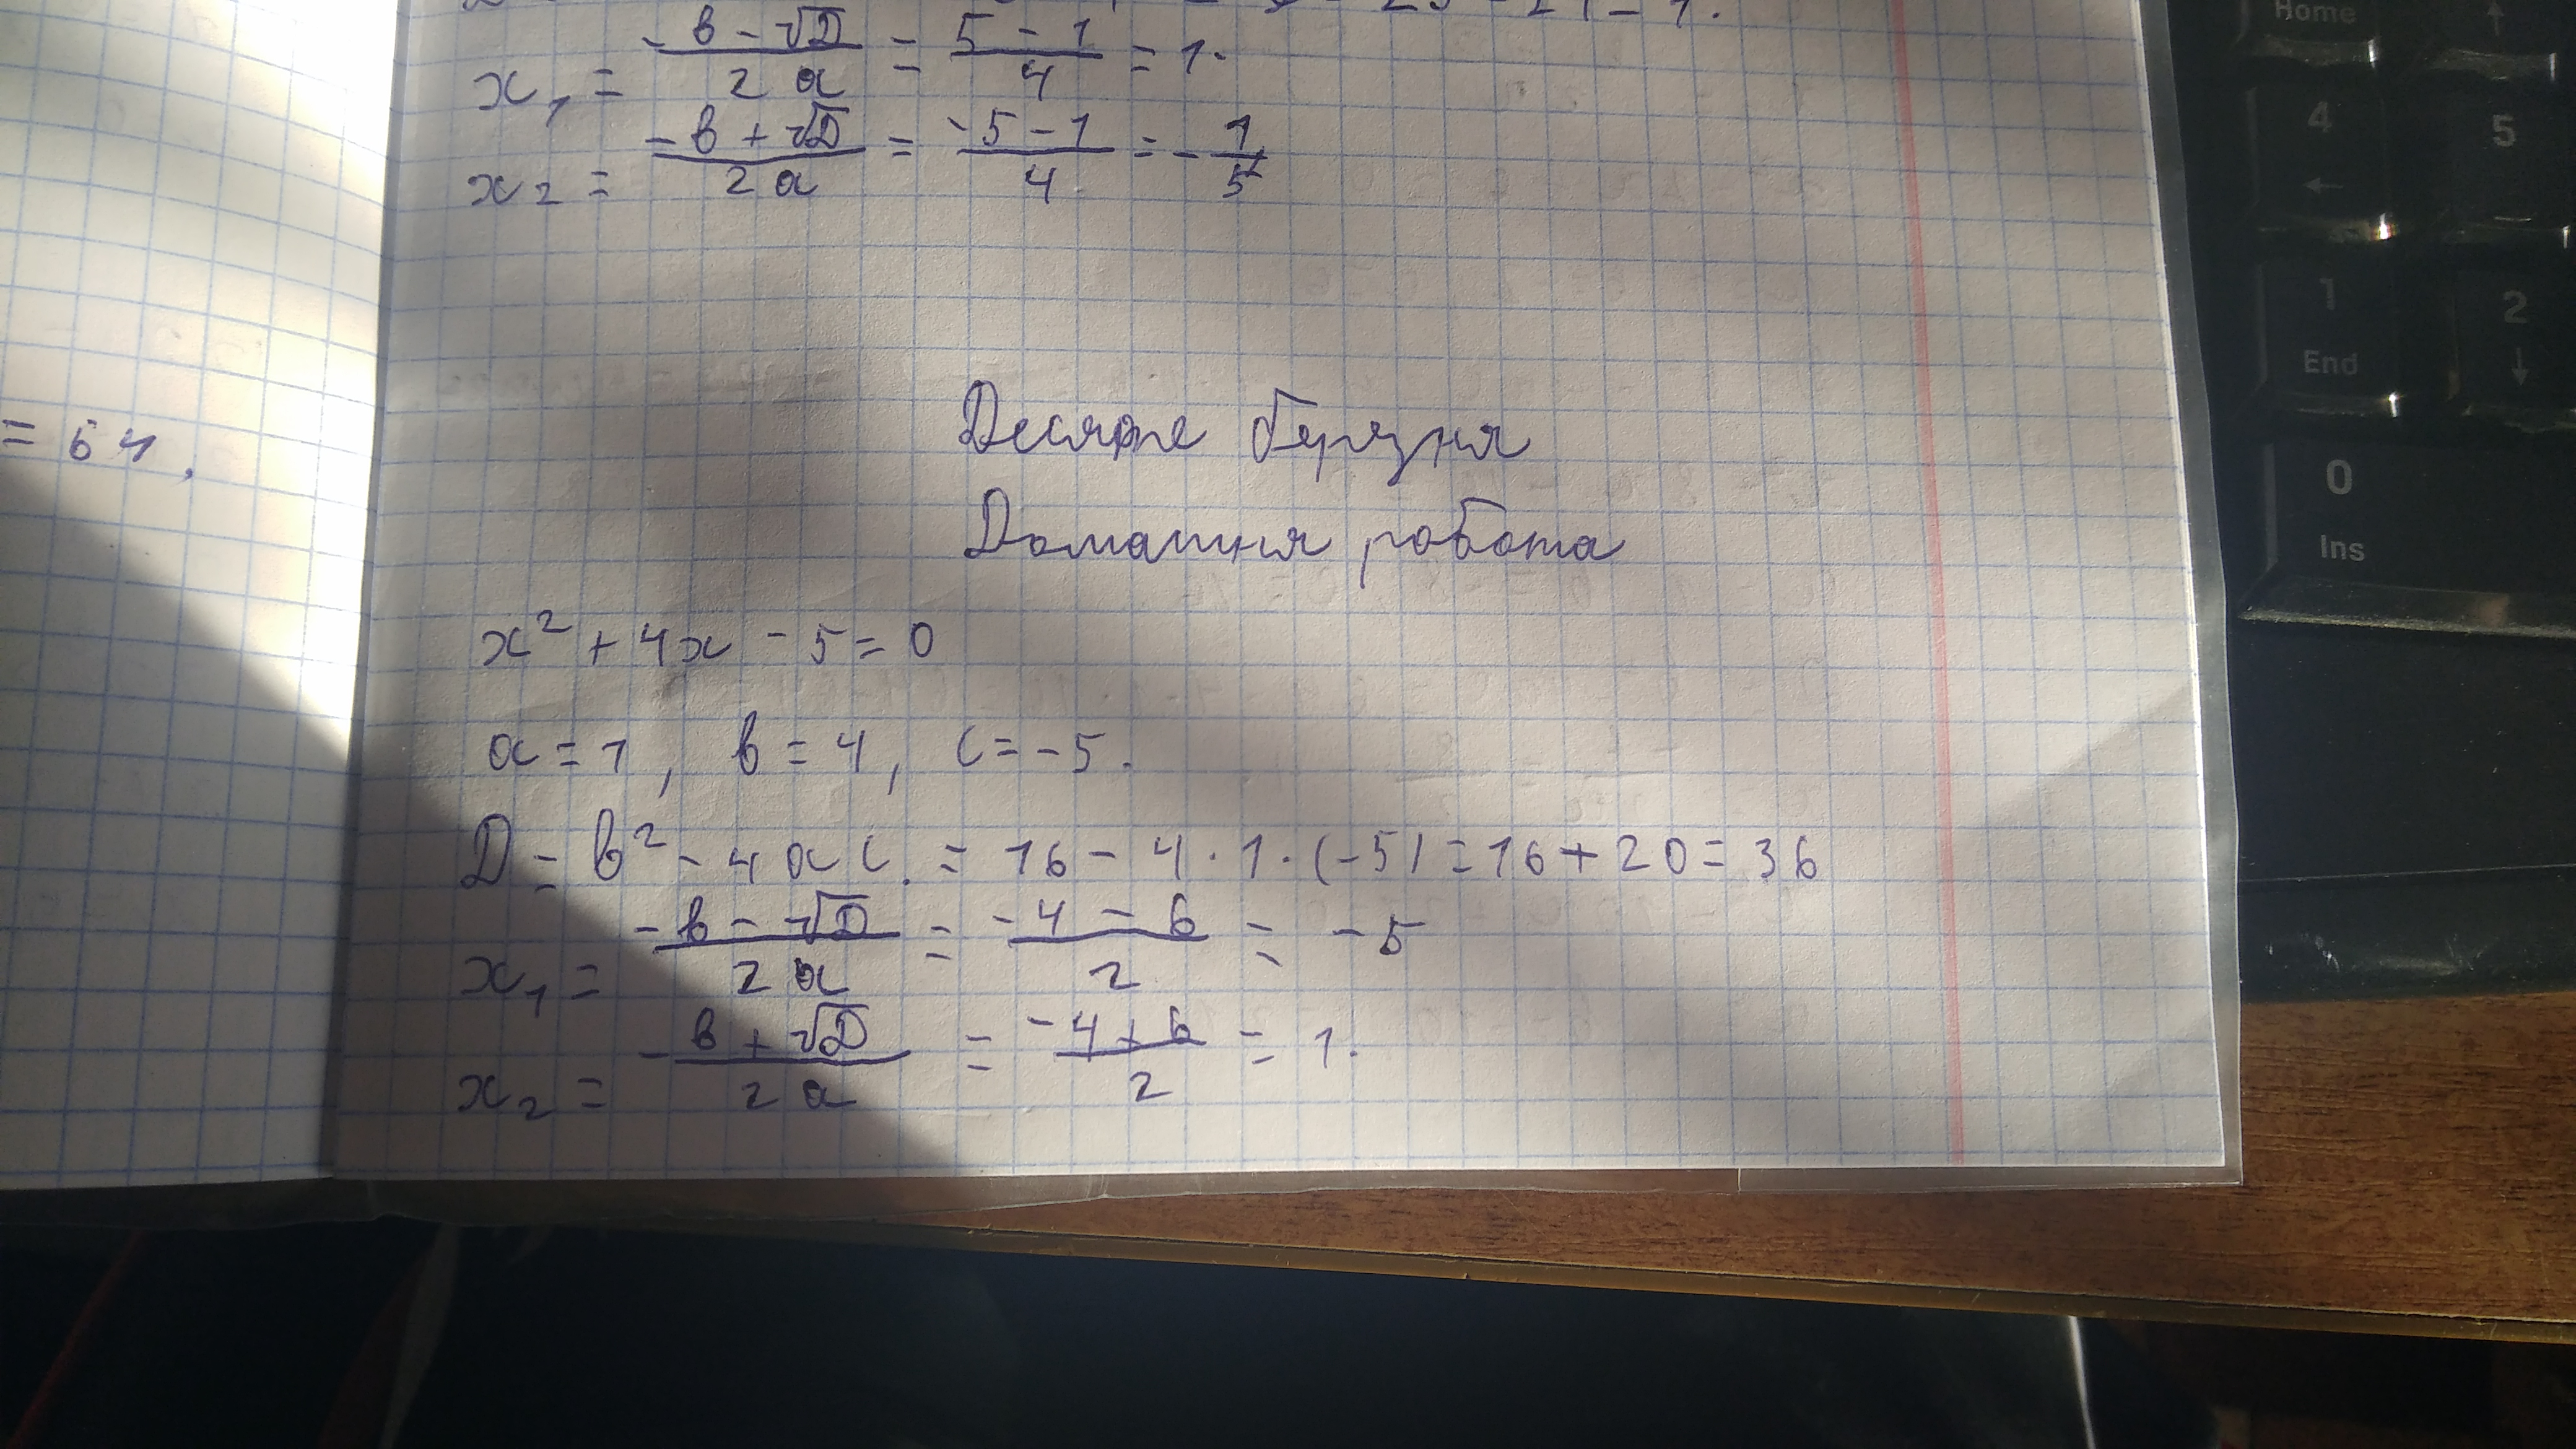 x₁ = (-b - √D)/(2a) = (5 - 1)/4 = 1.
x₂ = (-b + √D)/(2a) = (-5 - 1)/4 = -1/5
= 64,
Десяте березня
Домашня робота
x² + 4x - 5 = 0
a = 1, b = 4, c = -5.
D = b² - 4ac. = 16 - 4 · 1 · (-5) = 16 + 20 = 36
x₁ = (-b - √D)/(2a) = (-4 - 6)/2 = -5
x₂ = (-b + √D)/(2a) = (-4 + 6)/2 = 1.
Home
4
5
1
End
2
0
Ins